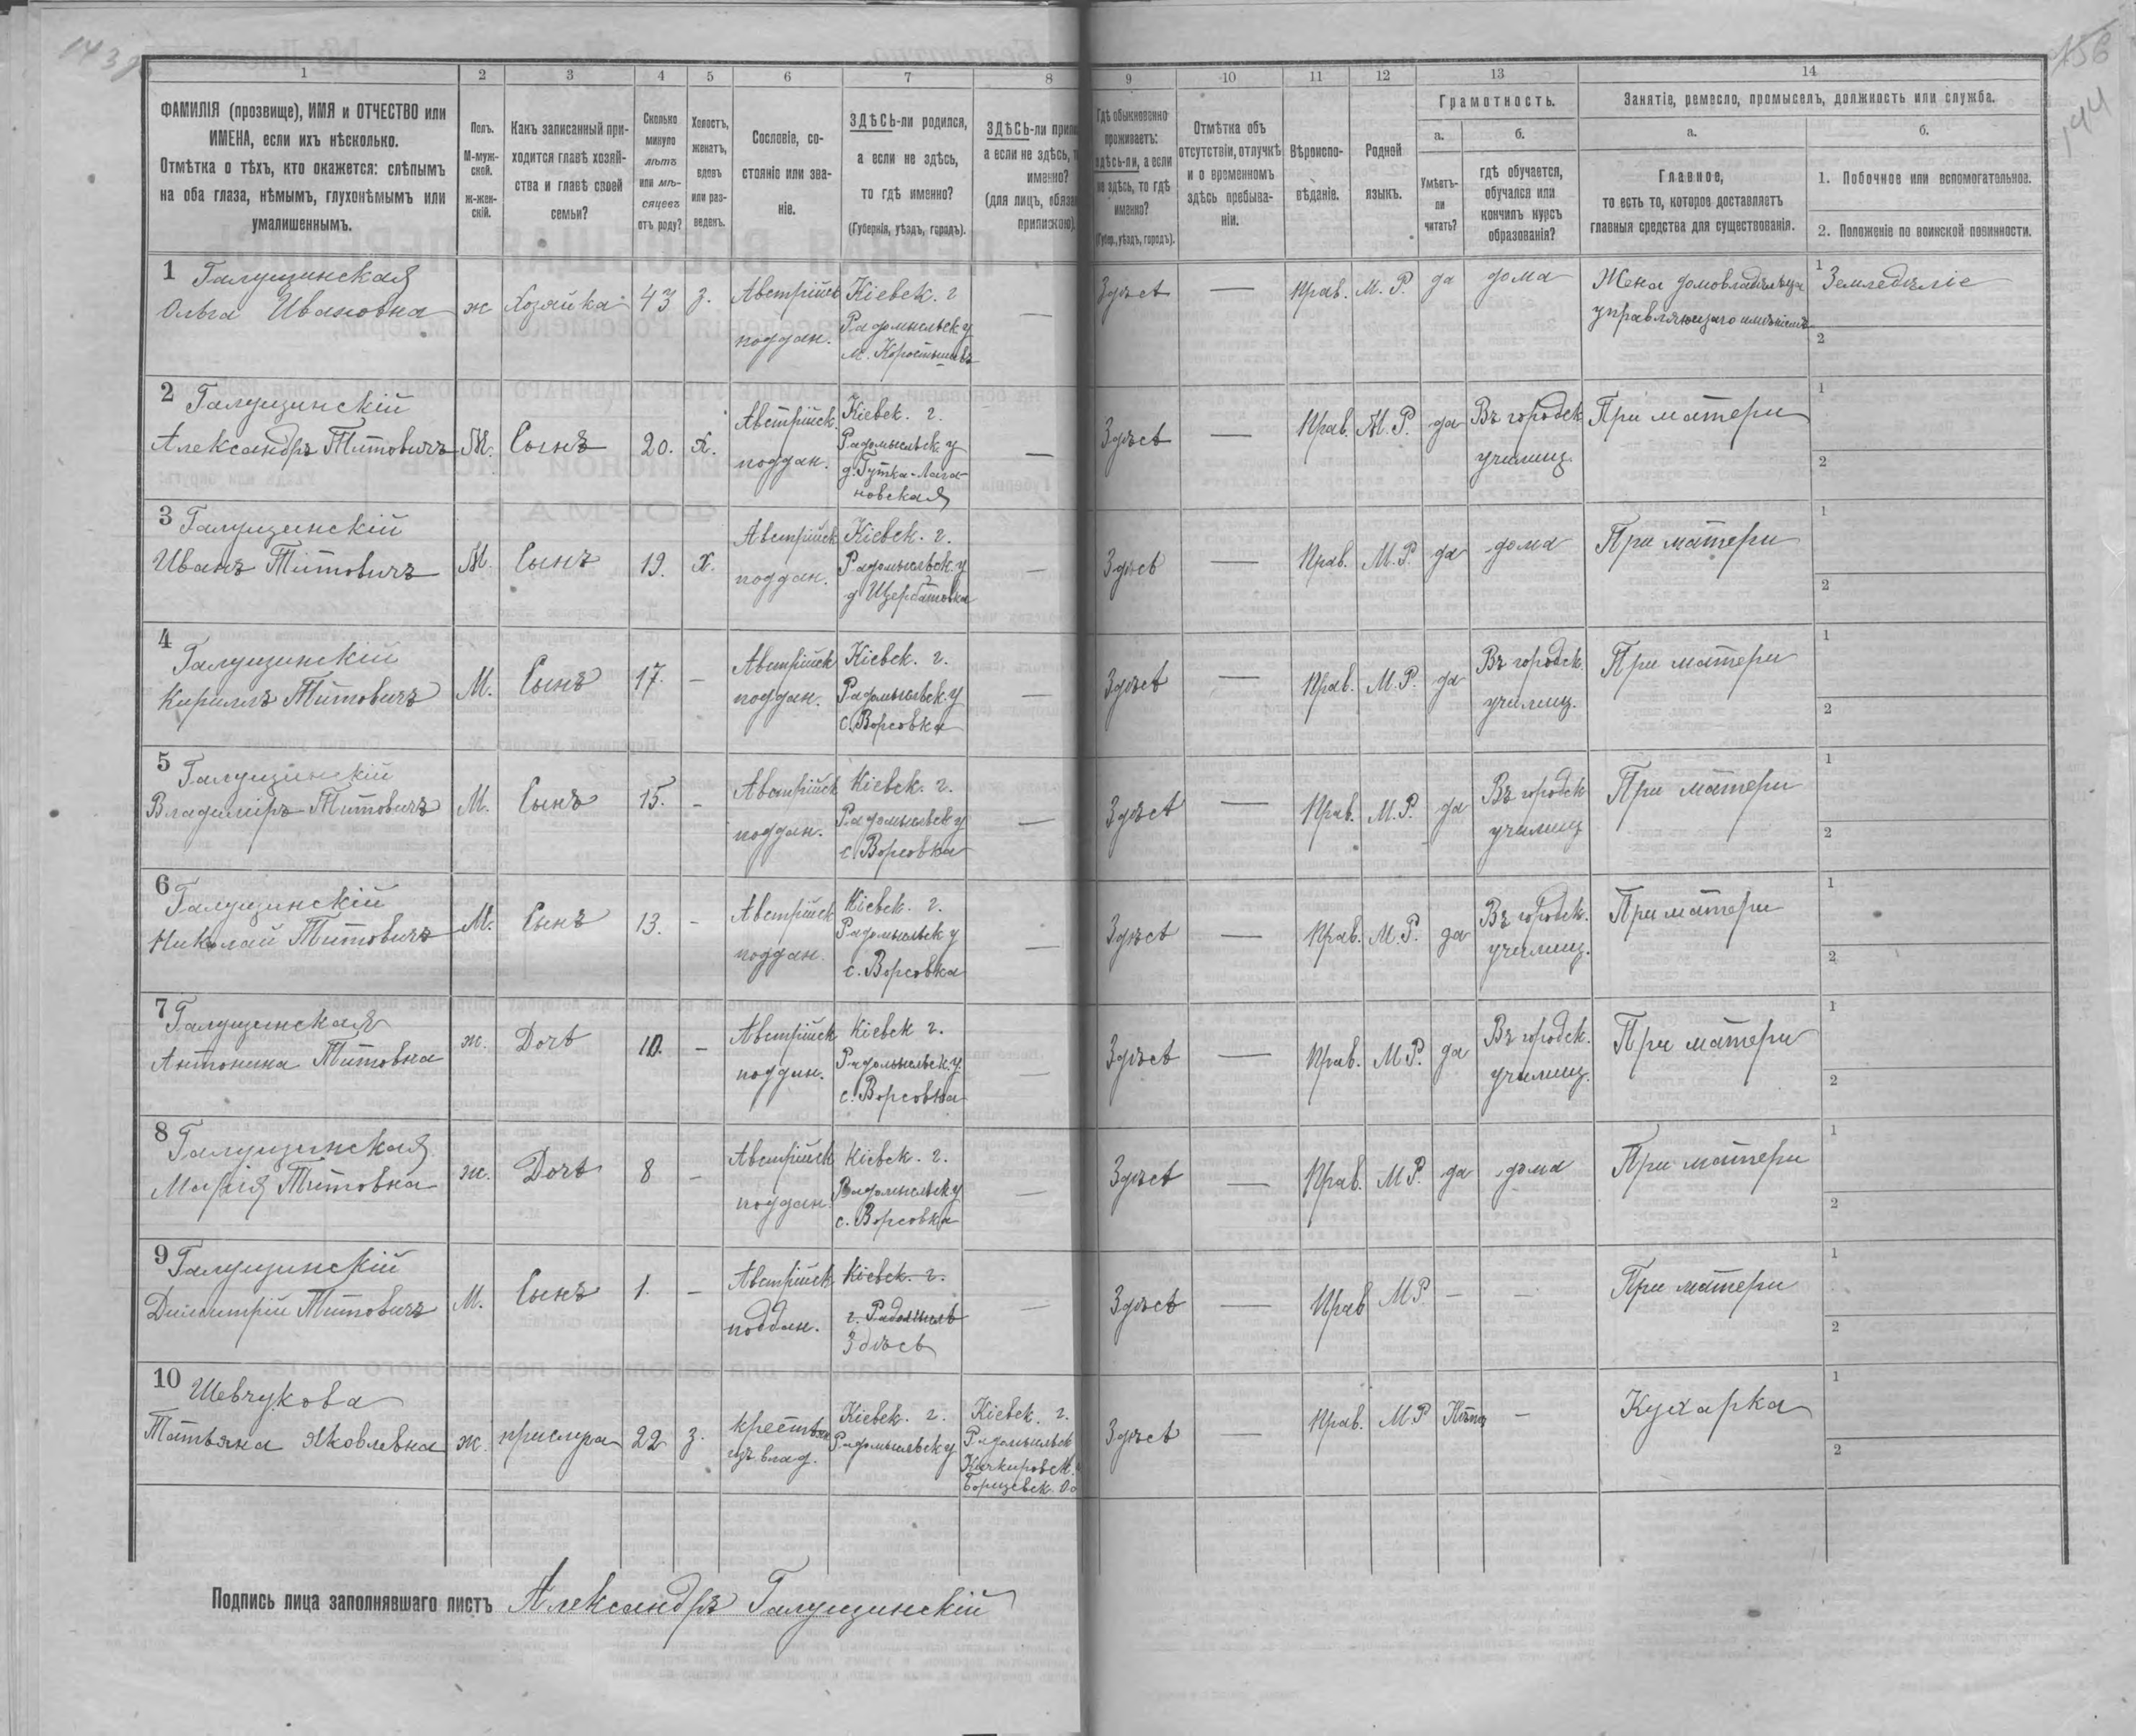 143
156
144
1 2 3 4 5 6 7 8 9 10 11 12 13 14
ФАМИЛІЯ (прозвище), ИМЯ и ОТЧЕСТВО или
ИМЕНА, если ихъ нѣсколько.
Отмѣтка о тѣхъ, кто окажется: слѣпымъ
на оба глаза, нѣмымъ, глухонѣмымъ или
умалишеннымъ.
Полъ.
М-муж-
ской.
Ж-жен-
скій.
Какъ записанный при-
ходится главѣ хозяй-
ства и главѣ своей
семьи?
Сколько
минуло
лѣтъ
или мѣ-
сяцевъ
отъ роду?
Холостъ,
женатъ,
вдовъ
или раз-
веденъ.
Сословіе, со-
стояніе или зва-
ніе.
ЗДѢСЬ-ли родился,
а если не здѣсь,
то гдѣ именно?
(Губернія, уѣздъ, городъ).
ЗДѢСЬ-ли
а если не здѣсь,
именно?
(для лицъ,
припискою).
Гдѣ обыкновенно
проживаетъ:
здѣсь-ли, а если
не здѣсь, то гдѣ
именно?
(Губер., уѣздъ, городъ).
Отмѣтка объ
отсутствіи, отлучкѣ
и о временномъ
здѣсь пребыва-
ніи.
Вѣроиспо-
вѣданіе.
Родной
языкъ.
Грамотность.
а.
Умѣетъ-
ли
читать?
б.
гдѣ обучается,
обучался или
кончилъ курсъ
образованія?
Занятіе, ремесло, промыселъ, должность или служба.
а.
Главное,
то есть то, которое доставляетъ
главныя средства для существованія.
б.
1. Побочное или вспомогательное.
2. Положеніе по воинской повинности.
1 Галущинская
Ольга Ивановна
ж
Хозяйка
43
з.
Австрійск
поддан.
Кіевск. г
Радомысльск у
м. Коростышевъ
—
Здѣсь
—
Прав.
М. Р.
да
дома
Жена домовладѣльца
управляющаго имѣніемъ
1 Земледѣліе
2
2 Галущинскій
Александръ Титовичъ
М.
Сынъ
20.
х.
Австрійск.
поддан.
Кіевск. г.
Радомысльск у
д. Гутка-Лога-
новская
—
Здѣсь
—
Прав.
М. Р.
да
Въ городск
училищ.
При матери
1
2
3 Галущинскій
Иванъ Титовичъ
М.
Сынъ
19.
х.
Австрійск
поддан.
Кіевск. г.
Радомысльск. у
д Щербатовка
—
Здѣсь
—
Прав.
М. Р.
да
дома
При матери
1
2
4
Галущинскій
Кириллъ Титовичъ
М.
Сынъ
17.
—
Австрійск
поддан.
Кіевск. г.
Радомысльск. у
с. Ворсовка
—
Здѣсь
—
Прав.
М. Р.
да
Въ городск.
училищ.
При матери
1
2
5 Галущинскій
Владиміръ Титовичъ
М.
Сынъ
15.
-
Австрійск
поддан.
Кіевск. г.
Радомысльск у
с. Ворсовка
—
Здѣсь
—
Прав.
М. Р.
да
Въ городск
училищ
При матери
1
2
6 Галущинскій
Николай Титовичъ
М.
Сынъ
13.
-
Австрійск
поддан.
Кіевск. г.
Радомысльск у
с. Ворсовка
—
Здѣсь
—
Прав.
М. Р.
да
Въ городск.
училищ.
При матери
1
2
7 Галущинская
Антонина Титовна
ж.
Дочь
10.
-
Австрійск
поддан.
Кіевск г.
Радомысльск. у.
с. Ворсовка
—
Здѣсь
—
Прав.
М Р.
да
Въ городск.
училищ.
При матери
1
2
8 Галущинская
Марія Титовна
ж.
Дочь
8
-
Австрійск
поддан.
Кіевск. г.
Радомысльск у
с. Ворсовка
—
Здѣсь
—
Прав.
М Р.
да
дома
При матери
1
2
9 Галущинскій
Димитрій Титовичъ
М.
Сынъ
1.
-
Австрійск
поддан.
Кіевск. г.
г. Радомысль
Здѣсь
—
Здѣсь
—
Прав
М Р.
—
—
При матери
1
2
10 Шевчукова
Татьяна Яковлевна
ж.
прислуга
22
з.
крестьян
изъ влад.
Кіевск. г.
Радомысльск у
Кіевск. г.
Радомысльск
Борщевск.
Здѣсь
—
Прав.
М Р
—
Кухарка
1
2
Подпись лица заполнявшаго листъ Александръ Галущинскій